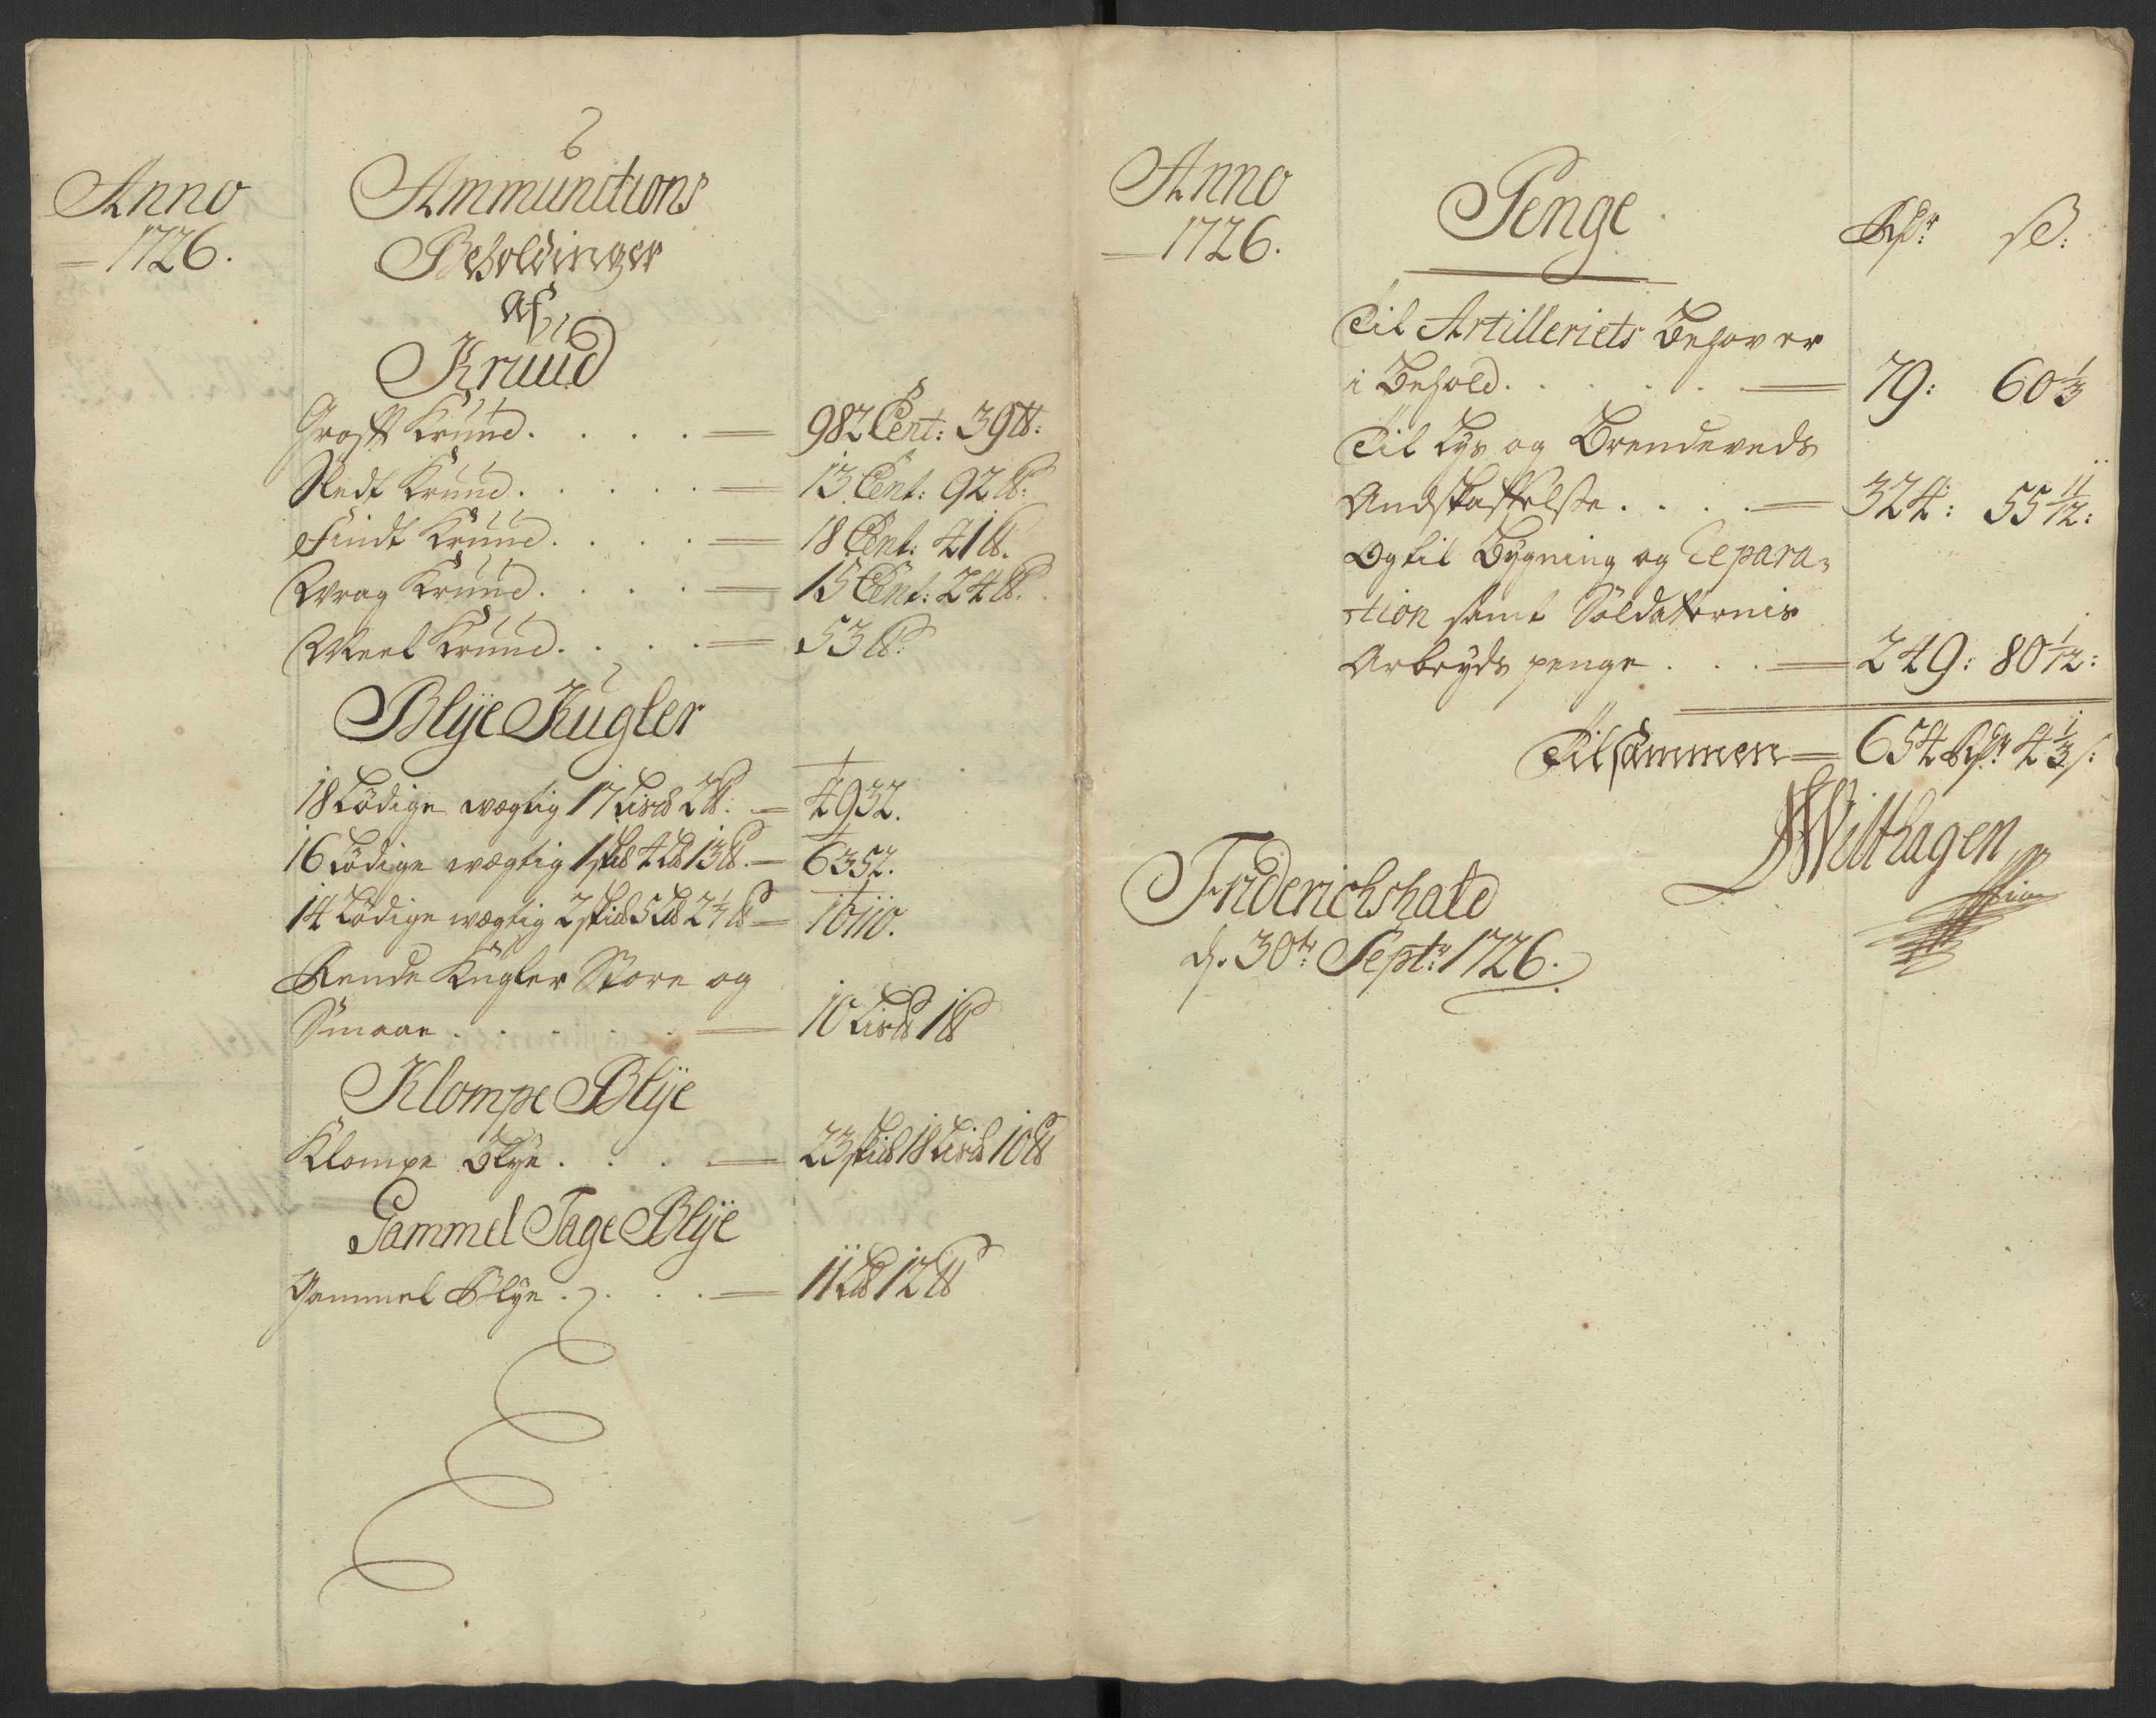 Anno
1726.
Ammunitions
Beholdinger
af
Kruud
Groft Kruud. . . . . = 982 Cent: 39 ℔:
Sledt Kruud. . . . . = 13 Cent: 92 ℔:
Findt Kruud. . . . . = 18 Cent: 41 ℔.
Wrag Kruud. . . . . = 15 Cent: 24 ℔.
Meel Kruud. . . . . = 53 ℔.
Blÿe Kugler
18 Lödige wægtig 17 Lis℔ 2 ℔: = 4932.
16 Lödige wægtig 1 skib℔ 4 L℔ 13 ℔. = 6352.
14 Lödige wægtig 2 skib℔ 5 L℔ 2½ ℔ = 10110.
Rende Kugler Store og
Smaae . . . . . . = 10 Lis℔ 1 ℔
Klompe Blÿe
Klompe Blÿe . . . . = 23 skib℔ 18 Lis℔ 10 ℔
Gammel Tage Blÿe
Gammel Blÿe . . . . = 11 L℔ 12 ℔
Anno
1726.
Penge
Rdr ß:
Til Artilleriets Behov er
i Behold. . . . . . = 79: 60 1/3
Til Lys og Brendeveds
Andskaffelse. . . . = 324: 55 11/12:
Og til Bygning og Repara-
tion samt Soldaternis
Arbeyds penge . . . = 249: 80 1/12:
Tilsammen = 654 Rdr 4 1/3 ß:
Wilthagen
Friderichshald
d. 30te Septr 1726.